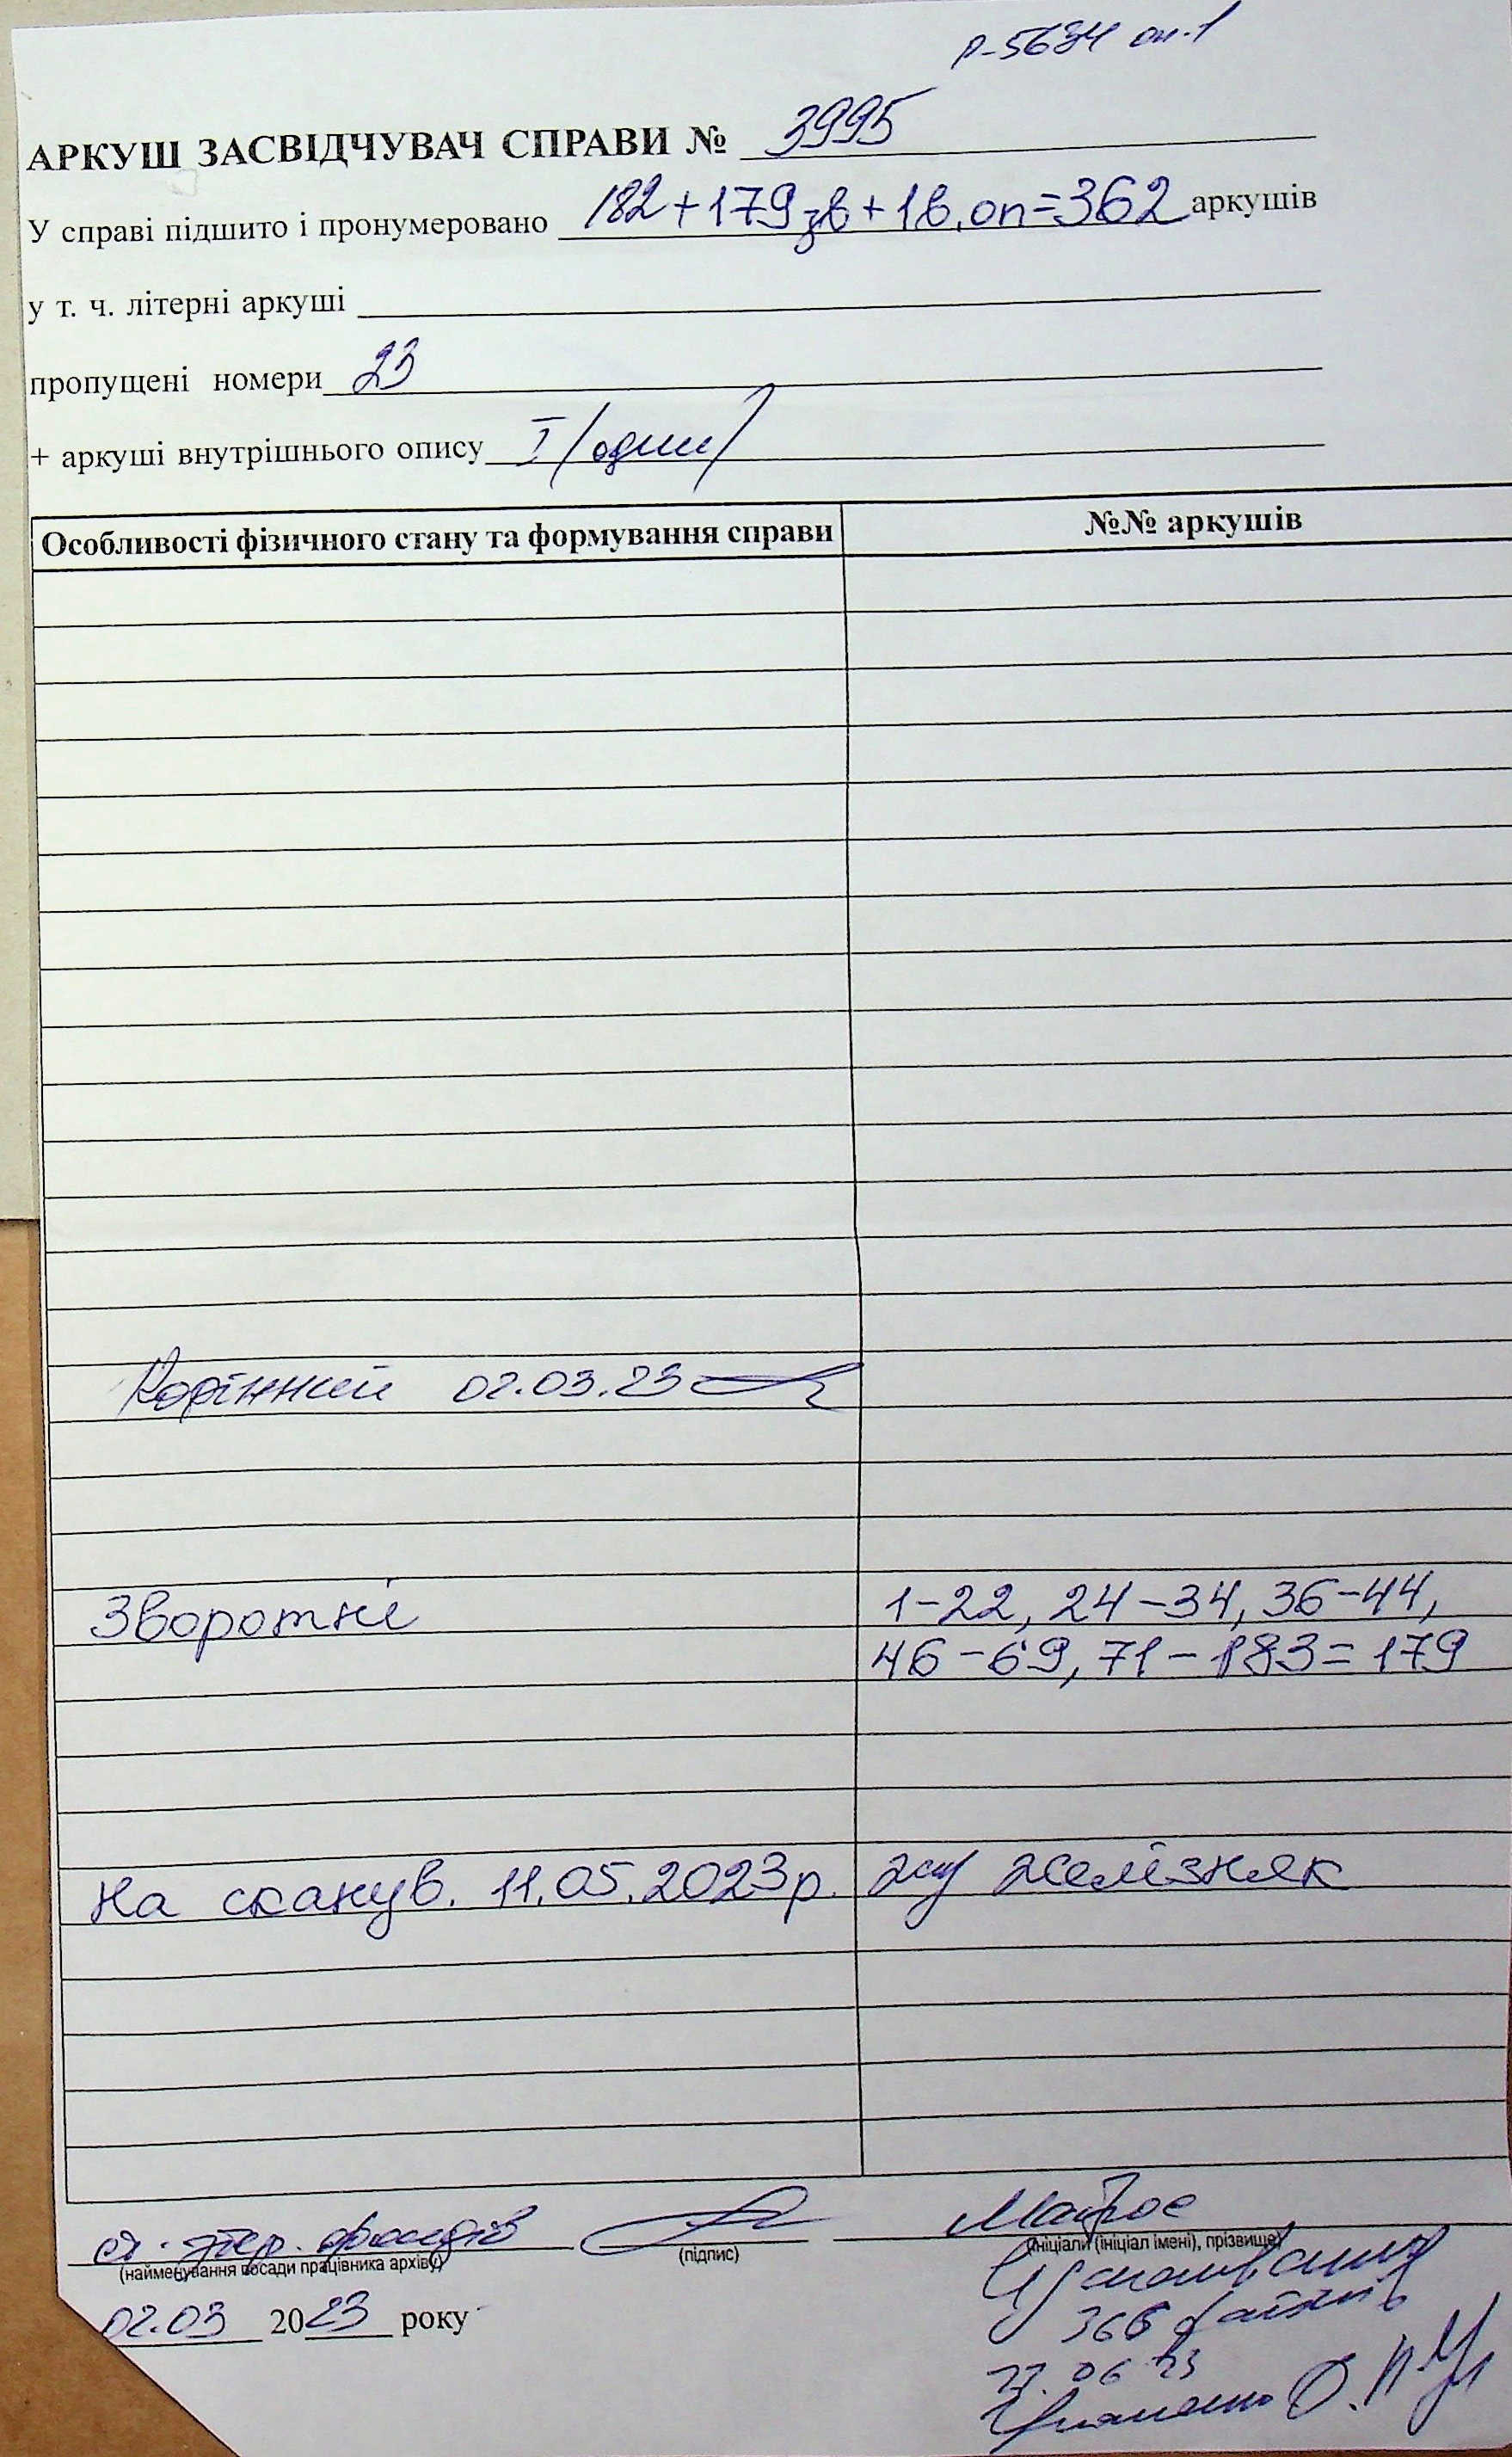 Р-5634 оп.1
АРКУШ ЗАСВІДЧУВАЧ СПРАВИ № 3995
У справі підшито і пронумеровано 182+179зв+1в.оп=362 аркушів
у т. ч. літерні аркуші
пропущені номери 23
+ аркуші внутрішнього опису I (один)
Особливості фізичного стану та формування справи №№ аркушів
Корінний 02.03.23
Зворотні 1-22, 24-34, 36-44,
46-69, 71-183=179
На сканув. 11.05.2023р. Железняк
ст. фондів
(найменування посади працівника архіву) (підпис) (ініціали (ініціал імені), прізвище)
02.03 2023 року
366 файлів
06 23